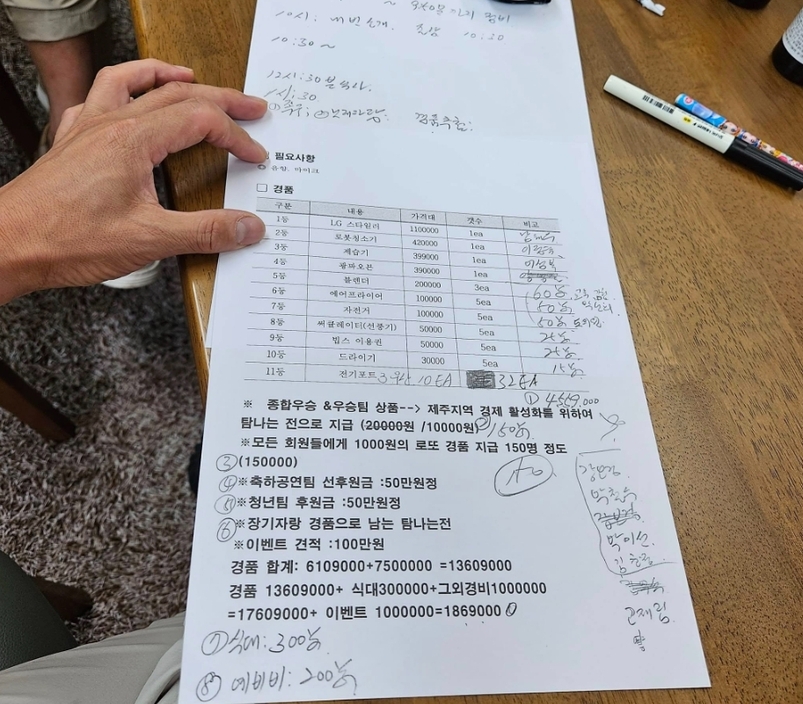 10시:
10:30
10:30 ~
12시:30분 식사.
1시:30
필요사항
음향. 마이크
□ 경품
구분 내용 가격대 갯수 비고
1등 LG 스타일러 1100000 1ea
2등 로봇청소기 420000 1ea
3등 제습기 399000 1ea
4등 광파오븐 390000 1ea
5등 블렌더 200000 3ea
6등 에어프라이어 100000 5ea 60만
7등 자전거 100000 5ea 50만
8등 써큘레이터(선풍기) 50000 5ea 50만
9등 빕스 이용권 50000 5ea 25만
10등 드라이기 30000 5ea 25만
11등 전기포트 10EA 32EA 15만
① 4569,000
※ 종합우승 &우승팀 상품--> 제주지역 경제 활성화를 위하여
탐나는 전으로 지급 (20000원 /10000원) ② 150만
※모든 회원들에게 1000원의 로또 경품 지급 150명 정도
③ (150000)
④ ※축하공연팀 선후원금 :50만원정
⑤ ※청년팀 후원금 :50만원정
⑥ ※장기자랑 경품으로 남는 탐나는전
※이벤트 견적 :100만원
경품 합계: 6109000+7500000 =13609000
경품 13609000+ 식대300000+그외경비1000000
=17609000+ 이벤트 1000000=1869000 0
⑦ 식대: 300만
⑧ 예비비: 200만
박이선
고재림